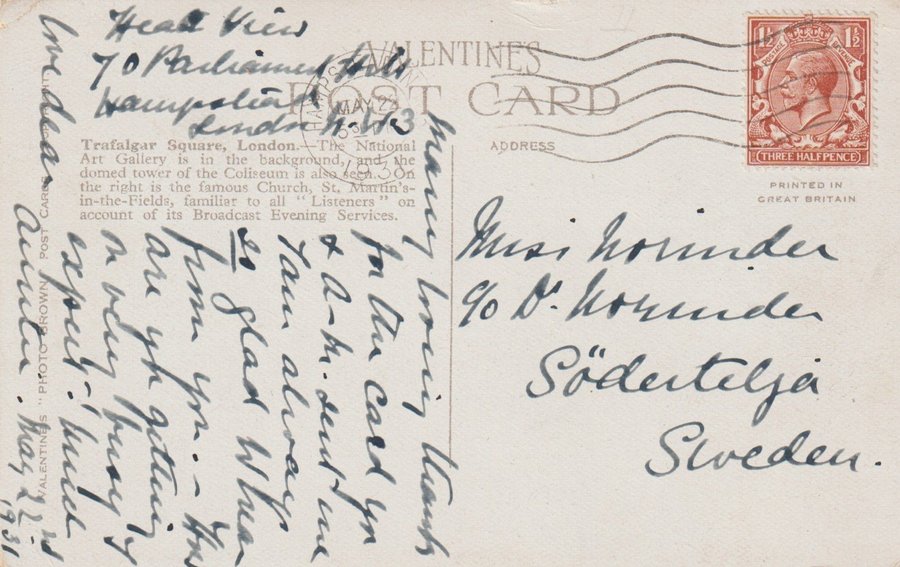 Heath View
70 Parliament Hill
Hampstead
London N.W.3
VALENTINE'S
POST CARD
HAMPSTEAD
MAY 22
1931
Trafalgar Square, London.—The National
Art Gallery is in the background, and the
domed tower of the Coliseum is also seen. On
the right is the famous Church, St. Martin's-
in-the-Fields, familiar to all "Listeners" on
account of its Broadcast Evening Services.
Many loving thanks
for the card you
& sent me
I am always
so glad when
from you. - How
are you getting
very busy
expect. Much
love dear
May 22nd
1931
VALENTINES "PHOTO BROWN" POST CARD
ADDRESS
1½ 1½
POSTAGE REVENUE
THREE HALFPENCE
PRINTED IN
GREAT BRITAIN
Miss Norinder
c/o Dr. Norinder
Södertelja
Sweden.